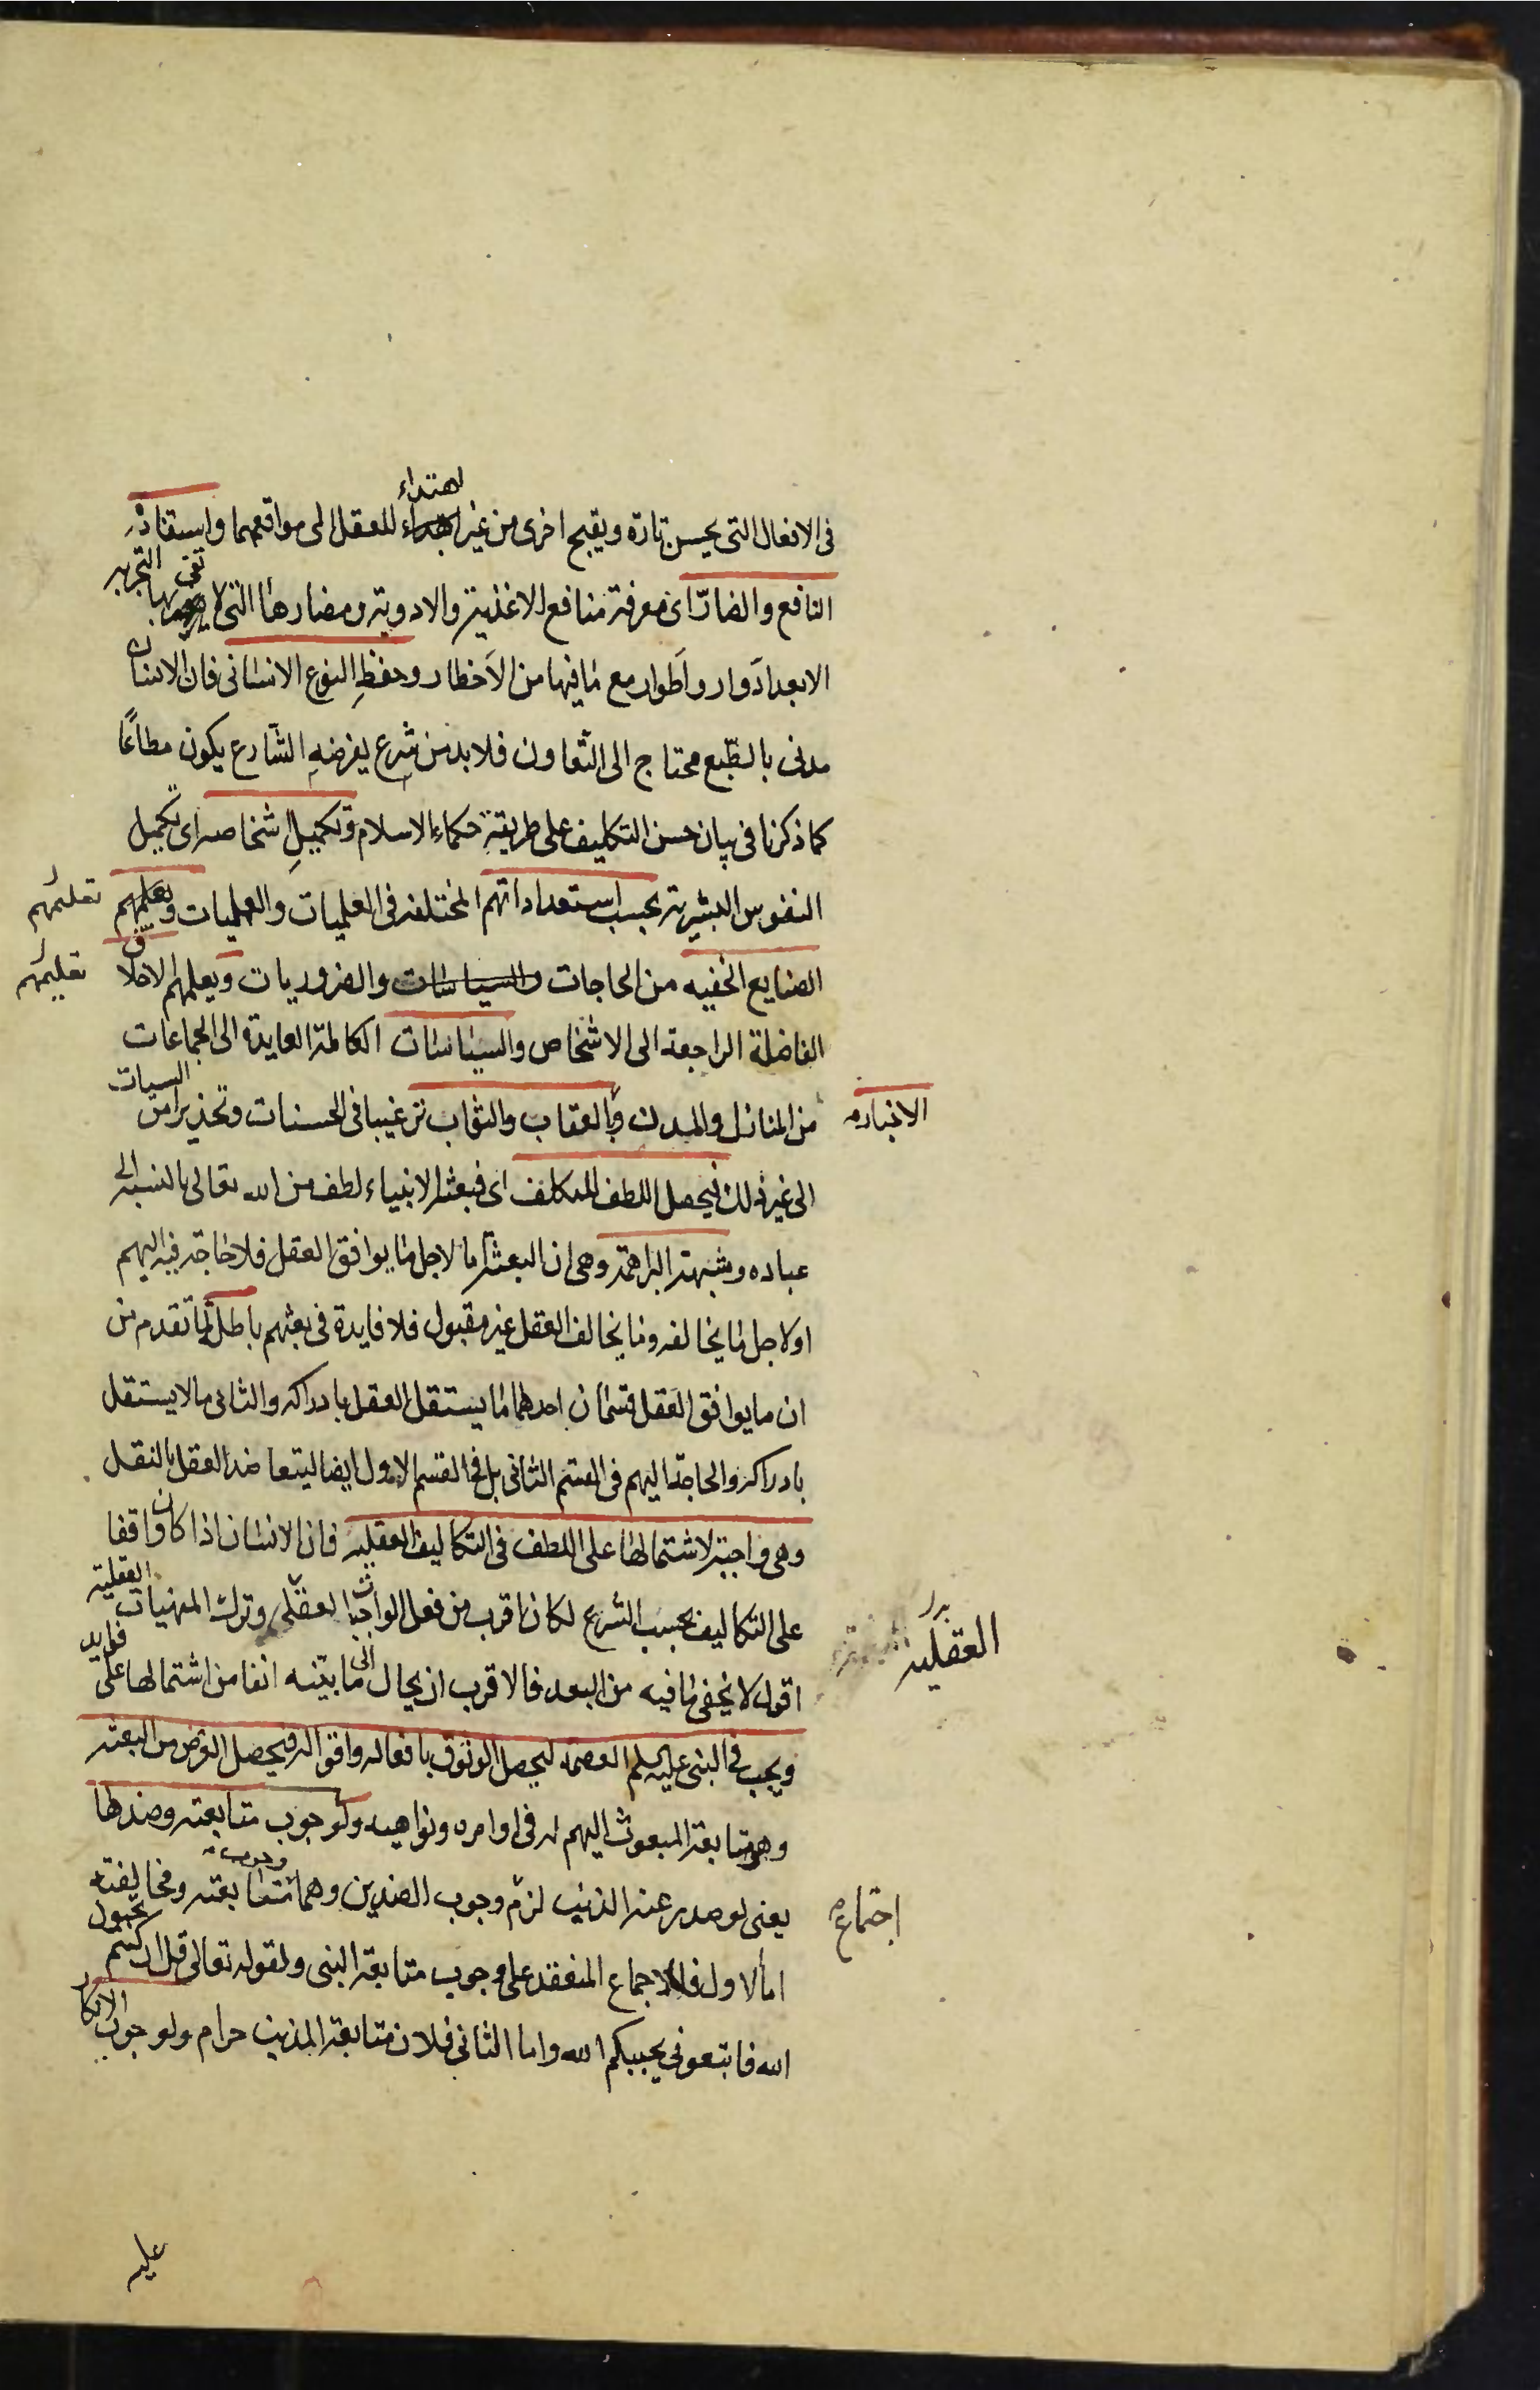 في الافعال التى يحسن تارة ويقبح اخرى من غير اهتداء للعقل الى مواقعهما واستفادة
النافع والضارّ اى معرفة منافع الاغذية والادوية ومضارها التى لا تفى بها التجربة
الا بعد ادَوار واَطوار مع ما فيها من الاَخطار وحفظِ النوع الانسانى فان الانسان
مدنى بالطّبع محتاج الى التّعاون فلا بد من شرع يفرضهِ الشارع يكون مطاعًا
كما ذكرنا فى بيان حسن التكليف على طريقةِ حكماء الاسلام وتكميلِ اشخاصه اى تكميل
النفوس البشرية بحسب استعداداتهم المختلفه فى العلميات والعمليات وتعليمهم
تعليمهم
الصنايع الخفيه من الحاجات والسياسات والضروريات ويعلمهم الاخلاق
تعليمهم
الفاضلة الراجعة الى الاشخاص والسياسات الكاملة العايدة الى الجماعات
من المنازل والمدن وبالعقاب والثواب ترغيبا فى الحسنات وتحذيرا من السيات
الاخبار
الى غير ذلك ليحصل اللطف للمكلف اى فبعثة الانبياء لطف من الله تعالى بالنسبة الى
عباده وشبهة البراهمة وهى ان البعثة اما لاجل ما يوافق العقل فلا حاجة فيه اليهم
او لاجل ما يخالفه وما يخالف العقل غير مقبول فلا فايدة فى بعثهم باطلة لما تقدم من
ان ما يوافق العقل قسمان احدهما ما يستقل العقل بادراكه والثانى ما لا يستقل
بادراكه والحاجة اليهم فى القسم الثانى بل فى القسم الاول ايضا ليتعاضد العقل بالنقل
وهى واجبة لاشتمالها على اللطف فى التكاليف العقلية فان الانسان اذا كان واقفا
على التكاليف بحسب الشرع لكان اقرب من فعل الواجبات العقلى وترك المنهيات العقلية
العقلية
اقول لا يخفى ما فيه من البعد فالاقرب ان يحال الى ما بيّنه انفا من اشتمالها على فوايد
ويجب فى النبى عليه السلم العصمة ليحصل الوثوق بافعاله واقواله فيحصل الغرض من البعثه
وهو متابعة المبعوث اليهم له فى اوامره ونواهيه ولوجوب متابعته وضدها
يعنى لو صدر عنه الذنب لزم وجوب الضدين وهما وجوب متابعته ومخالفته
اجتماع
اما الاول فللاجماع المنعقد على وجوب متابعة النبى ولقوله تعالى قل ان كنتم تحبون
الله فاتبعونى يحببكم الله واما الثانى فلان متابعة المذنب حرام ولوجوب الانكار
عليه